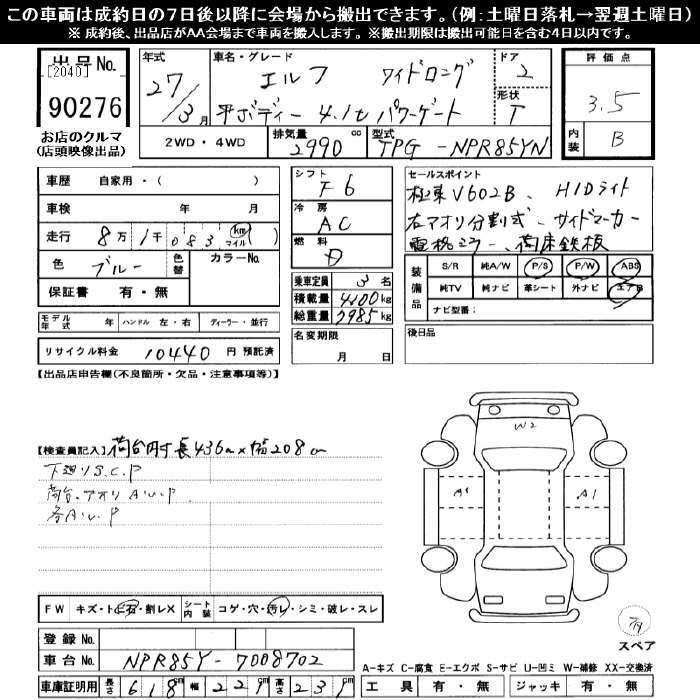 この車両は成約日の7日後以降に会場から搬出できます。(例:土曜日落札→翌週土曜日)
※ 成約後、出品店がAA会場まで車両を搬入します。※搬出期限は搬出可能日を含む4日以内です。
出品No.
[2040]
90276
お店のクルマ
(店頭映像出品)
年式 27/3月
車名・グレード エルフ ワイドロング
平ボディー 4.1t パワーゲート
ドア 2
形状 T
2WD・4WD 排気量 2990 cc 型式 TPG-NPR85YN
評価点 3.5
内装 B
車歴 自家用・( )
車検 年 月
走行 8万 1千 083 km マイル ( )
色 ブルー 色替 カラーNo.
保証書 有・無
シフト F6
冷房 AC
燃料 D
乗車定員 3名
積載量 4100kg
総重量 7985kg
セールスポイント
極東V602B、HIDライト
右アオリ分割式、サイドマーカー
電格ミラー、荷床鉄板
装備品 S/R 純A/W P/S P/W ABS
純TV 純ナビ 革シート 外ナビ エアB
ナビ型番:
モデル年式 年 ハンドル 左・右 ディーラー・並行
リサイクル料金 10440 円 預託済
名変期限
月 日
後日品
【出品店申告欄(不良箇所・欠品・注意事項等)】
【検査員記入】荷台内寸 長436cm×幅208cm
下廻りS.C.P
荷台、アオリ A.U.P
各A.U.P
W2
A1
A1
FW キズ・ト石・割レX シート内装 コゲ・穴・汚レ・シミ・破レ・スレ
登録 No.
車台 No. NPR85Y-7008702
車庫証明用 長さ 618cm 幅 221cm 高さ 231cm
スペア
A-キズ C-腐食 E-エクボ S-サビ U-凹ミ W-補修 XX-交換済
工具 有・無 ジャッキ 有・無